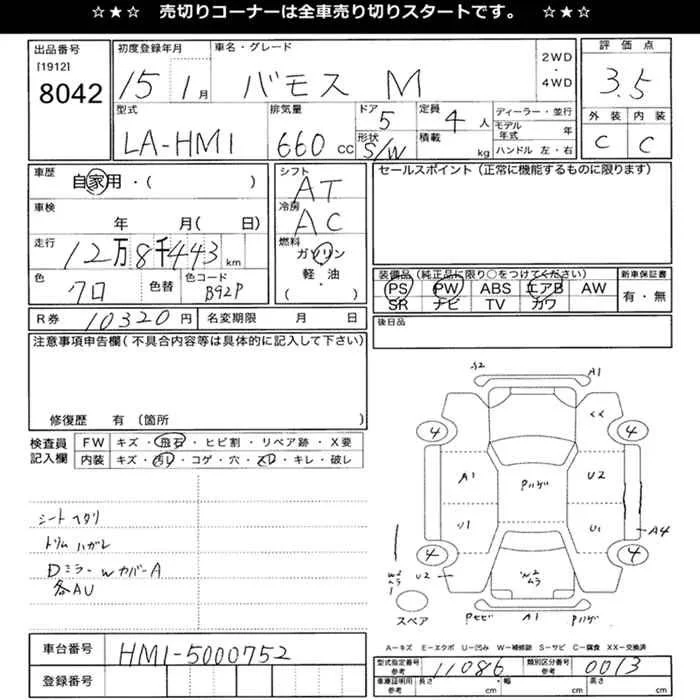 ☆★☆ 売切りコーナーは全車売り切りスタートです。 ☆★☆
出品番号 初度登録年月 車名・グレード 評価点
[1912] 8042 15 1月 バモス M 2WD・4WD 3.5
型式 排気量 ドア 5 定員 4人 ディーラー・並行 外装 内装
モデル年式 年
LA-HM1 660cc 形状 S/W 積載 kg ハンドル 左・右 C C
車歴 自家用・( ) シフト AT セールスポイント(正常に機能するものに限ります)
車検 年 月( 日) 冷房 AC
走行 12万8千443km 燃料 ガソリン
軽・油
・( )
色 クロ 色替 色コード B92P
装備品(純正品に限り○をつけてください) 新車保証書
PS PW ABS エアB AW 有・無
SR ナビ TV カワ
R券 10320円 名変期限 月 日 後日品
注意事項申告欄(不具合内容等は具体的に記入して下さい)
修復歴 有(箇所
検査員記入欄 FW キズ・飛石・ヒビ割・リペア跡・X要
内装 キズ・汚レ・コゲ・穴・スレ・キレ・破レ
シートヘタリ
トリムハガレ
DミラーwカバーA
各AU
S2 A1
4 4
A1 Pハゲ U2
U1 U1
A4
4 4
U2 W2ムラ
W2ムラ
スペア Pセビ A1 Pハゲ
A−キズ E−エクボ U−凹み W−補修跡 S−サビ C−腐食 XX−交換済
車台番号 HM1-5000752
型式指定番号 参考 11086 類別区分番号 参考 0013
登録番号
車庫証明用 参考 長さ cm ・幅 cm